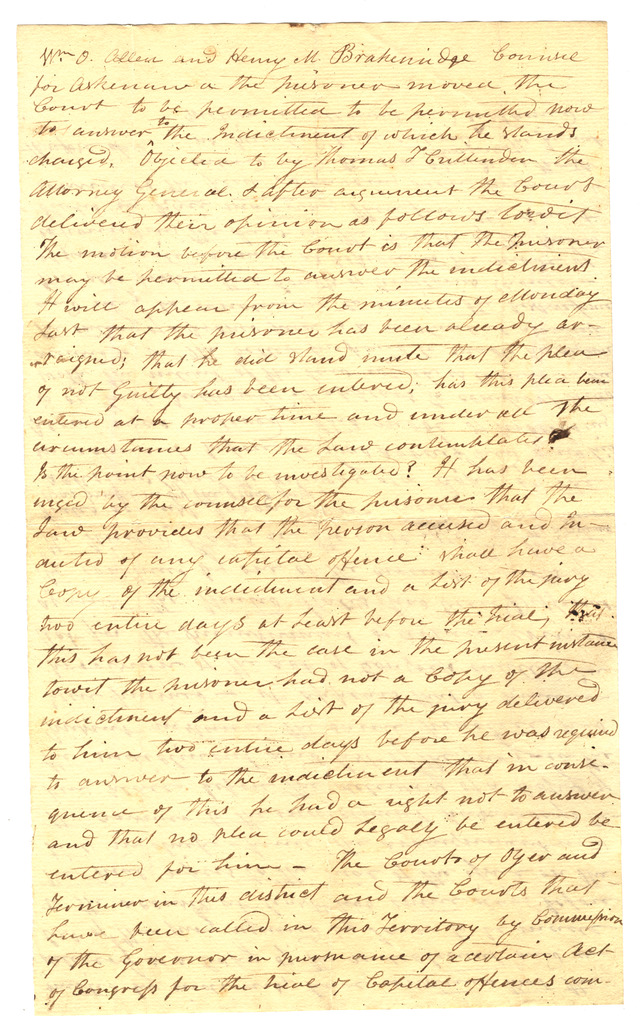 Wm O. Allen and Henry M Brakenridge Counsel
for Askenaw a the prisoner moved the
Court to be permitted to be permitted now
to answer to the Indictment of which he stands
charged. Objected to by Thomas T Crittenden the
Attorney General. & after argument the Court
delivered their opinion as follows towit
The motion before the Court is that the Prisoner
may be permitted to answer the indictment.
It will appear from the minutes of Monday
Last that the prisoner has been already ar-
raigned; that he did stand mute that the plea
of not Guilty has been entered; has this plea been
entered at a proper time and under all the
circumstances that the Law contemplates
Is the point now to be investigated? It has been
urged by the counsel for the prisoner that the
Law provides that the person accused and In-
dicted of any capital offence shall have a
Copy of the indictment and a List of the jury
two entire days at Least before the Trial; that
this has not been the case in the present instance
towit the prisoner had not a Copy of the
indictment and a List of the jury delivered
to him two entire days before he was required
to answer to the indictment that in conse-
quence of this he had a right not to answer
and that no plea could Legaly be entered be
entered for him – The Courts of Oyer and
Terminer in this district and the Courts that
have been called in this Territory by Commission
of the Governor in pursuance of a certain Act
of Congress for the trial of Capital offences com-